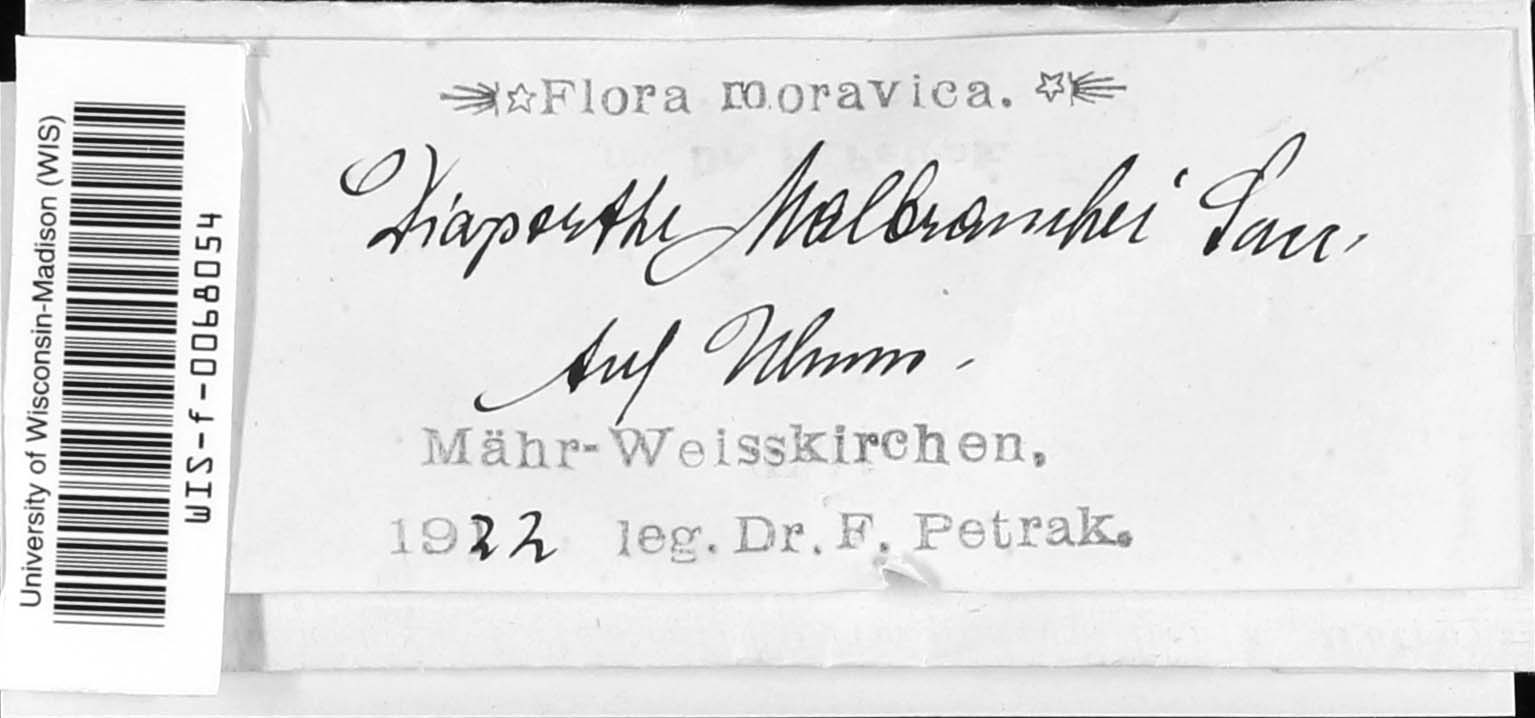 University of Wisconsin-Madison (WIS)
WIS-f-0068054
Flora moravica.
Diaporthe Malbranchei Sacc.
Auf Ulmus.
Mähr-Weisskirchen.
1922 leg. Dr. F. Petrak.